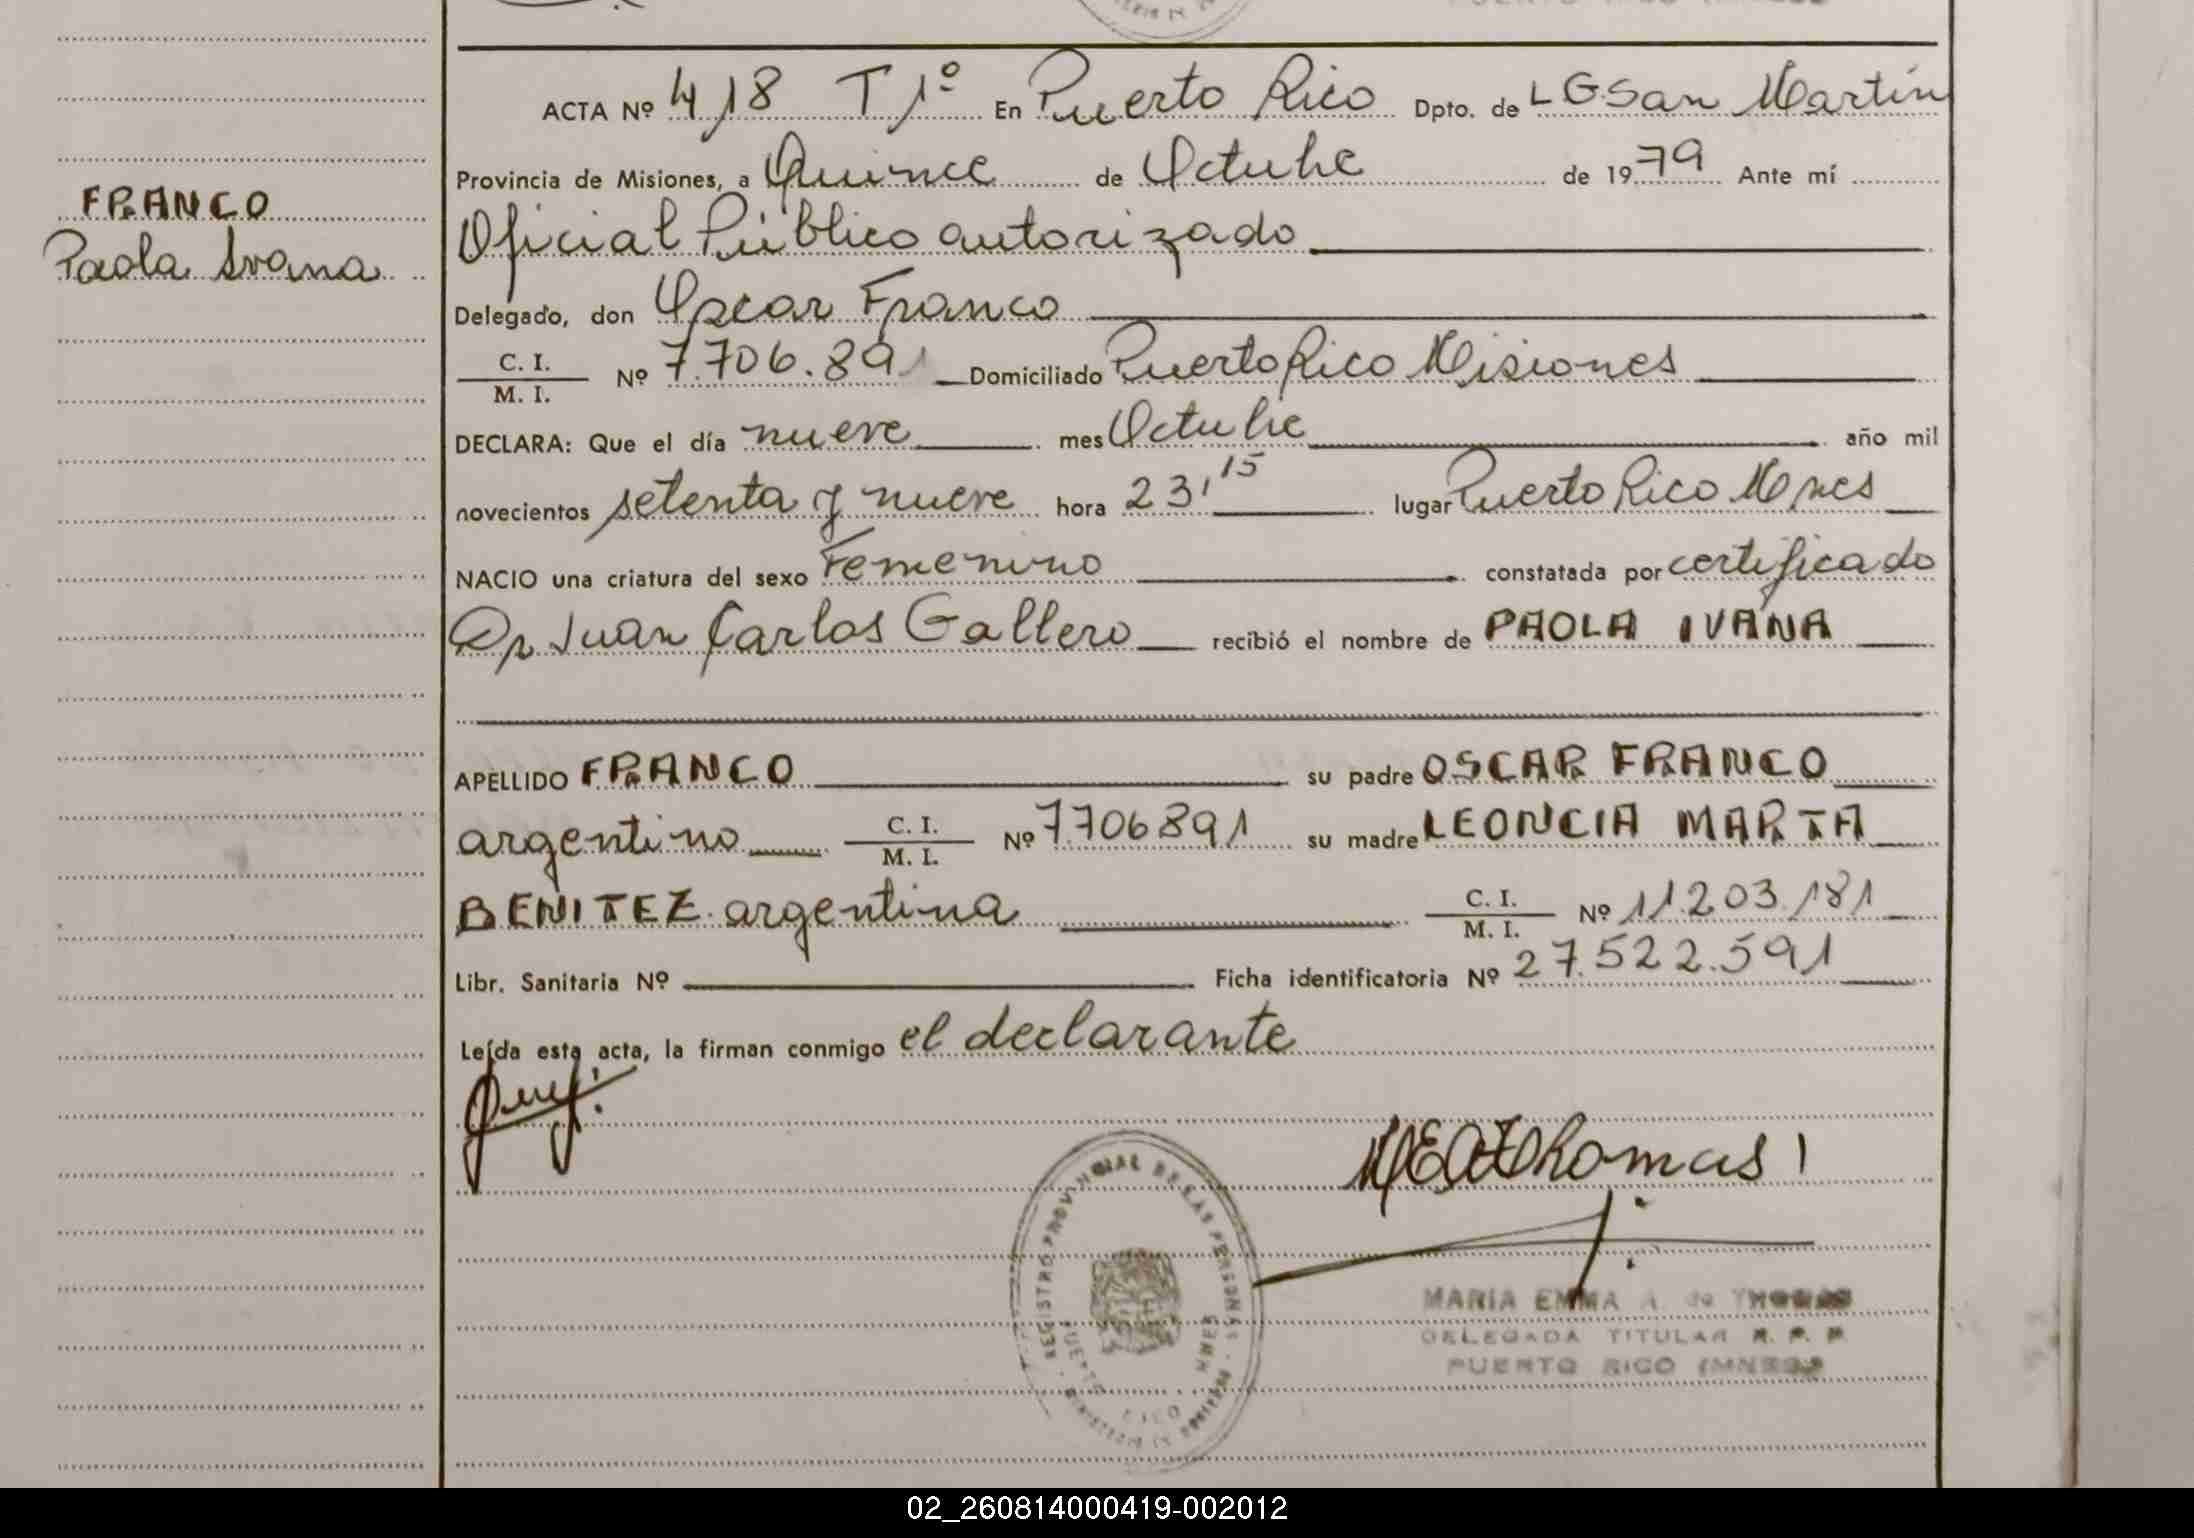 ACTA Nº 418 T 1º En Puerto Rico Dpto. de L G San Martín
Provincia de Misiones, a Quince de Octubre de 1979 Ante mí
FRANCO
Paola Ivana
Oficial Público autorizado
Delegado, don Oscar Franco
C. I.
M. I.
Nº 7.706.891 Domiciliado Puerto Rico Misiones
DECLARA: Que el día nueve mes Octubre año mil
novecientos setenta y nueve hora 23,15 lugar Puerto Rico Mnes
NACIO una criatura del sexo Femenino constatada por certificado
Dr Juan Carlos Gallero recibió el nombre de PAOLA IVANA
APELLIDO FRANCO su padre OSCAR FRANCO
argentino C. I. M. I. Nº 7.706891 su madre LEONCIA MARTA
BENITEZ argentina C. I. M. I. Nº 11.203.181
Libr. Sanitaria Nº Ficha identificatoria Nº 27.522.591
Leída esta acta, la firman conmigo el declarante
REGISTRO PROVINCIAL DE LAS PERSONAS
PUERTO RICO MNES
MARIA EMMA A. de THOMAS
DELEGADA TITULAR R. P. P.
PUERTO RICO (MNES)
02_260814000419-002012